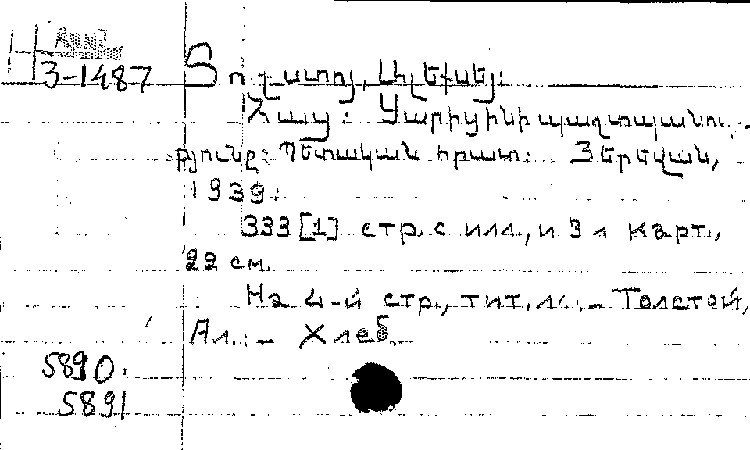 H
3-1487 Տոլստոյ, Ալեքսեյ։
Հաց։ Ցարիցինի պաշտպանու-
թյունը։ Պետական հրատ։ Յերեվան,
1939.
333 [1] стр. с илл., и 3 л карт.,
22 см.
На 4-й стр., тит. л.: – Толстой,
Ал. – Хлеб.
5890.
5891